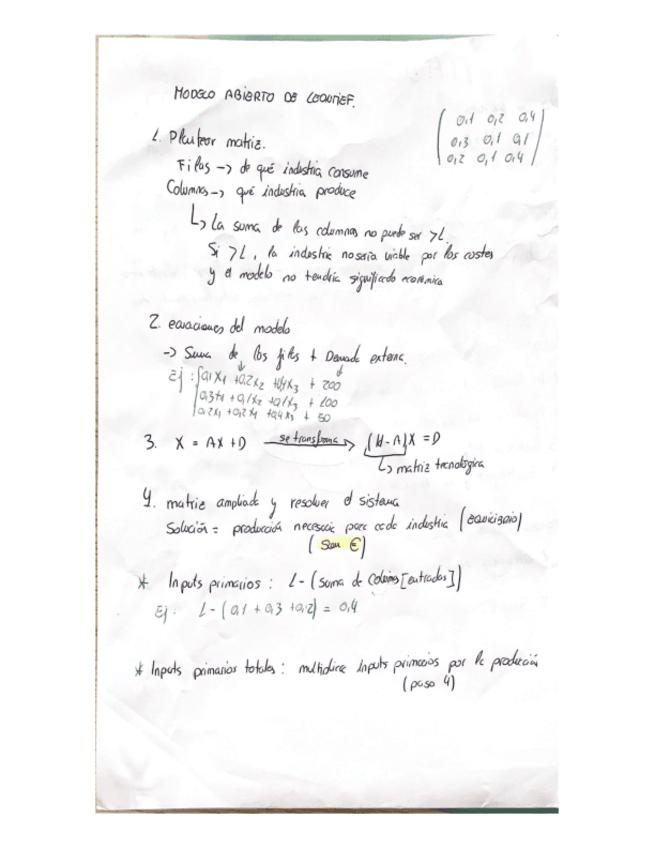 MODELO ABIERTO DE LEONTIEF.
( 0,1 0,2 0,4
0,3 0,1 0,1
0,2 0,1 0,4 )
1. Plantear matriz.
Filas -> de qué industria consume
Columnas -> qué industria produce
↳ La suma de las columnas no puede ser >1.
Si >1, la industria no sería viable por los costes
y el modelo no tendría significado económico
2. ecuaciones del modelo
-> Suma de las filas + Demanda externa.
Ej: 0,1x1 + 0,2x2 + 0,4x3 + 200
0,3x1 + 0,1x2 + 0,1x3 + 100
0,2x1 + 0,2x1 + 0,4x3 + 50
3. X = AX + D se transforma (Id - A)X = D
↳ matriz tecnológica
4. matriz ampliada y resolver el sistema
Solución = producción necesaria para cada industria (equilibrio)
(Sean €)
* Inputs primarios: 1 - (suma de columnas [entradas])
Ej: 1 - (0,1 + 0,3 + 0,2) = 0,4
* Inputs primarios totales: multiplicar inputs primarios por la producción
(paso 4)